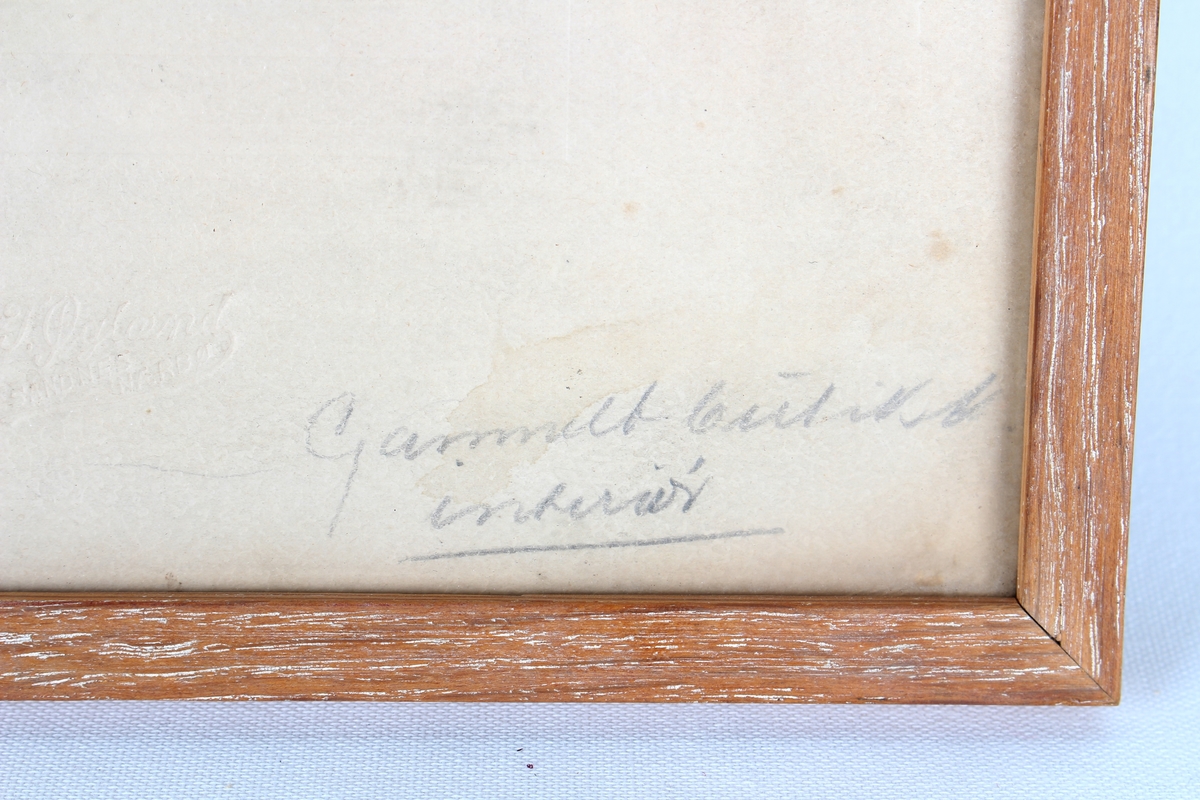 Gammelt butikk
interiør